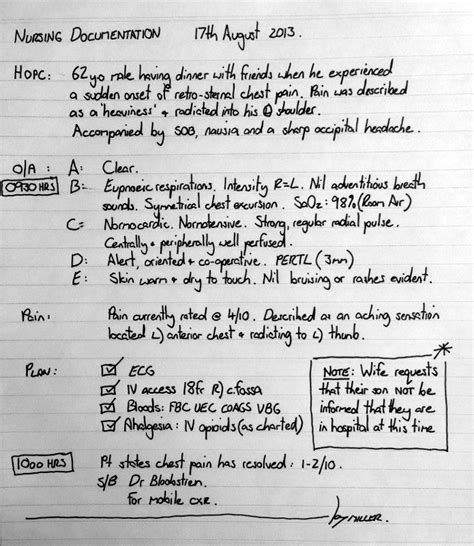 NURSING DOCUMENTATION 17th August 2013.
HOPC: 62 yo male having dinner with friends when he experienced
a sudden onset of retro-sternal chest pain. Pain was described
as a 'heaviness' & radiated into his L shoulder.
Accompanied by SOB, nausia and a sharp occipital headache.
O/A: A: Clear.
0930 HRS B: Eupnoeic respirations. Intensity R=L. Nil adventitious breath
sounds. Symmetrical chest excursion. SaO2: 98% (Room Air)
C: Normocardic. Normotensive. Strong, regular radial pulse.
Centrally & peripherally well perfused.
D: Alert, oriented & co-operative. PERTL (3mm)
E: Skin warm & dry to touch. Nil bruising or rashes evident.
Pain: Pain currently rated @ 4/10. Described as an aching sensation
located L) anterior chest & radiating to L) thumb.
PLAN: ☑ ECG
☑ IV access 18fr R) c.fossa
☑ Bloods: FBC UEC COAGS VBG
☑ Analgesia: IV opioids (as charted)
NOTE: Wife requests
that their son NOT be
informed that they are
in hospital at this time
1000 HRS Pt states chest pain has resolved: 1-2/10.
S/B Dr Bloobstien.
For mobile CXR.
MILLER.